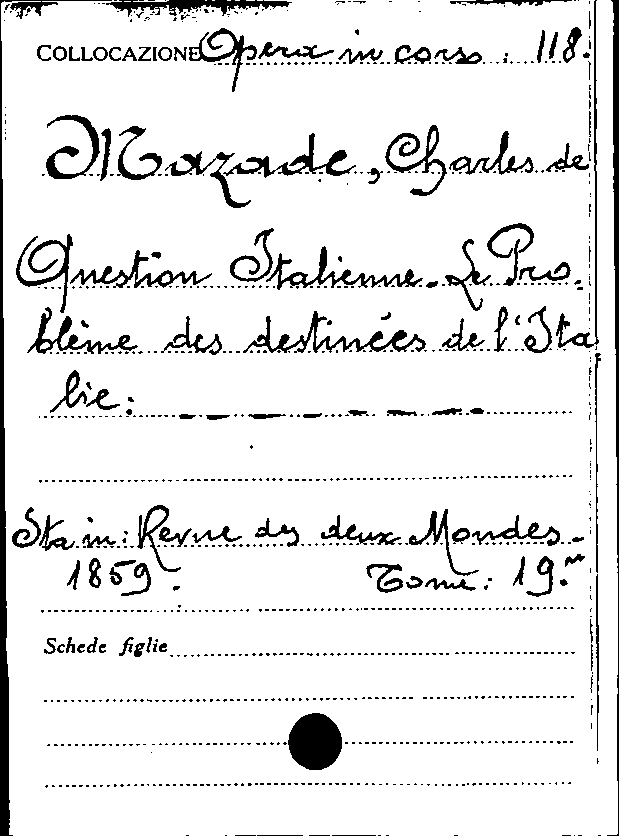 COLLOCAZIONE Opera in corso : 118.
Mazade, Charles de
Question Italienne. Le Pro-
blème des destinées de l'Ita
lie: _ _ _ _ _ _
Sta in: Revue des deux Mondes -
1859. Tome: 19.m
Schede figlie